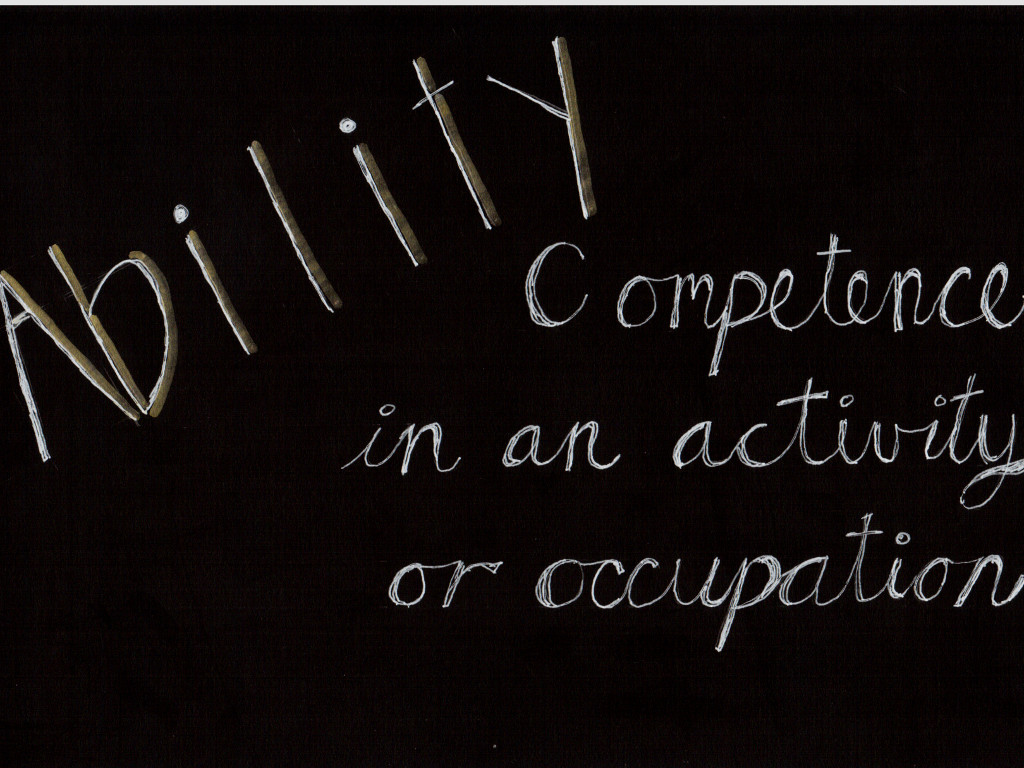 Ability
Competence
in an activity
or occupation